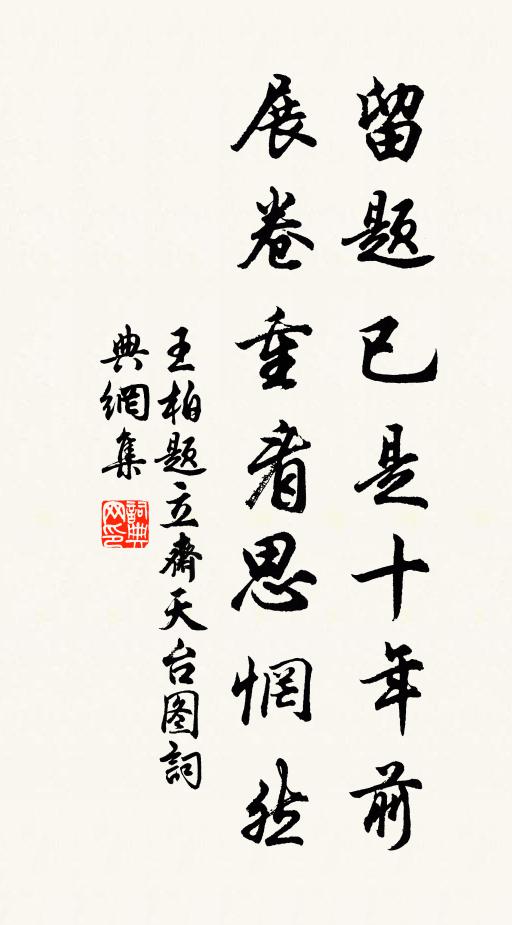 留题已是十年前
展卷重看思惘然
王柏题立斋天台图詞
典網集
詞典网印